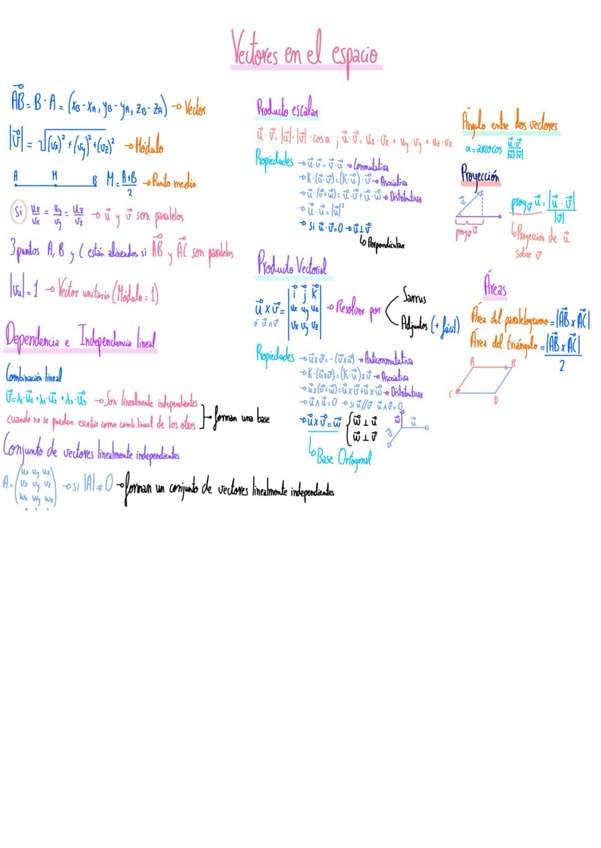 Vectores en el espacio
AB⃗ = B - A = (xB - xA, yB - yA, zB - zA) → Vector
|v⃗| = √((vx)² + (vy)² + (vz)²) → Módulo
A M B M = A+B/2 → Punto medio
Si ux/vx = uy/vy = uz/vz → u⃗ y v⃗ son paralelos
3 puntos A, B y C están alineados si AB⃗ y AC⃗ son paralelos
= 1 → Vector unitario (Módulo = 1)
Dependencia e Independencia lineal
Combinación lineal
→ Son linealmente independientes
cuando no se pueden escribir como comb. lineal de los otros
→ forman una base
Conjunto de vectores linealmente independientes
A = (ux uy uz
vx vy vz
wx wy wz)
→ si |A| ≠ 0 → forman un conjunto de vectores linealmente independientes
Producto escalar
u⃗ · v⃗ = |u⃗| · |v⃗| · cos α ; u⃗ · v⃗ = ux · vx + uy · vy + uz · vz
Propiedades → u⃗ · v⃗ = v⃗ · u⃗ → Conmutativa
→ K · (u⃗ · v⃗) = (K · u⃗) · v⃗ → Asociativa
→ Distributiva
→ u⃗ · u⃗ = |u⃗|²
→ si u⃗ · v⃗ = 0 → u⃗ ⊥ v⃗
↳ Perpendicular
Producto Vectorial
u⃗ x v⃗ = |i⃗ j⃗ k⃗
ux uy uz
vx vy vz|
ó u⃗ ∧ v⃗
→ Resolver por
Sarrus
Adjuntos (+ fácil)
Propiedades → u⃗ x v⃗ = -(v⃗ x u⃗) → Anticonmutativa
→ K · (u⃗ x v⃗) = (K · u⃗) x v⃗ → Asociativa
→ u⃗ x (v⃗ + w⃗) = u⃗ x v⃗ + u⃗ x w⃗ → Distributiva
→ u⃗ ∧ u⃗ = 0 → si u⃗ // v⃗ u⃗ ∧ v⃗ = 0
→ u⃗ x v⃗ = w⃗ { w⃗ ⊥ u⃗
w⃗ ⊥ v⃗
w⃗ u⃗ v⃗
↳ Base Ortogonal
Ángulo entre dos vectores
α = arccos u⃗ · v⃗/|u⃗| |v⃗|
Proyección
u⃗
v⃗
proy v⃗ u⃗
proy v⃗ u⃗ = |u⃗ · v⃗|/|v⃗|
↳ Proyección de u⃗
sobre v⃗
Áreas
Área del paralelogramo = |AB⃗ x AC⃗|
Área del triángulo = |AB⃗ x AC⃗|/2
A B
C D